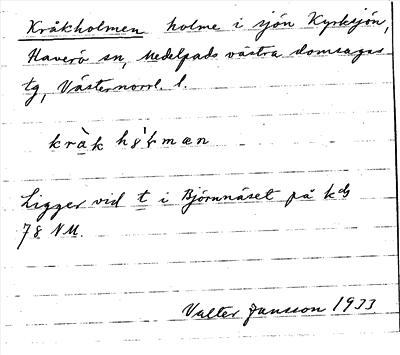 Kråkholmen holme i sjön Kyrksjön,
Haverö sn, Medelpads västra domsagas
tg, Västernorrl. l.
kràk hɞ̀ɽmæn
Ligger vid t i Björnnäset på kds
78 NM.
Valter Jansson 1933